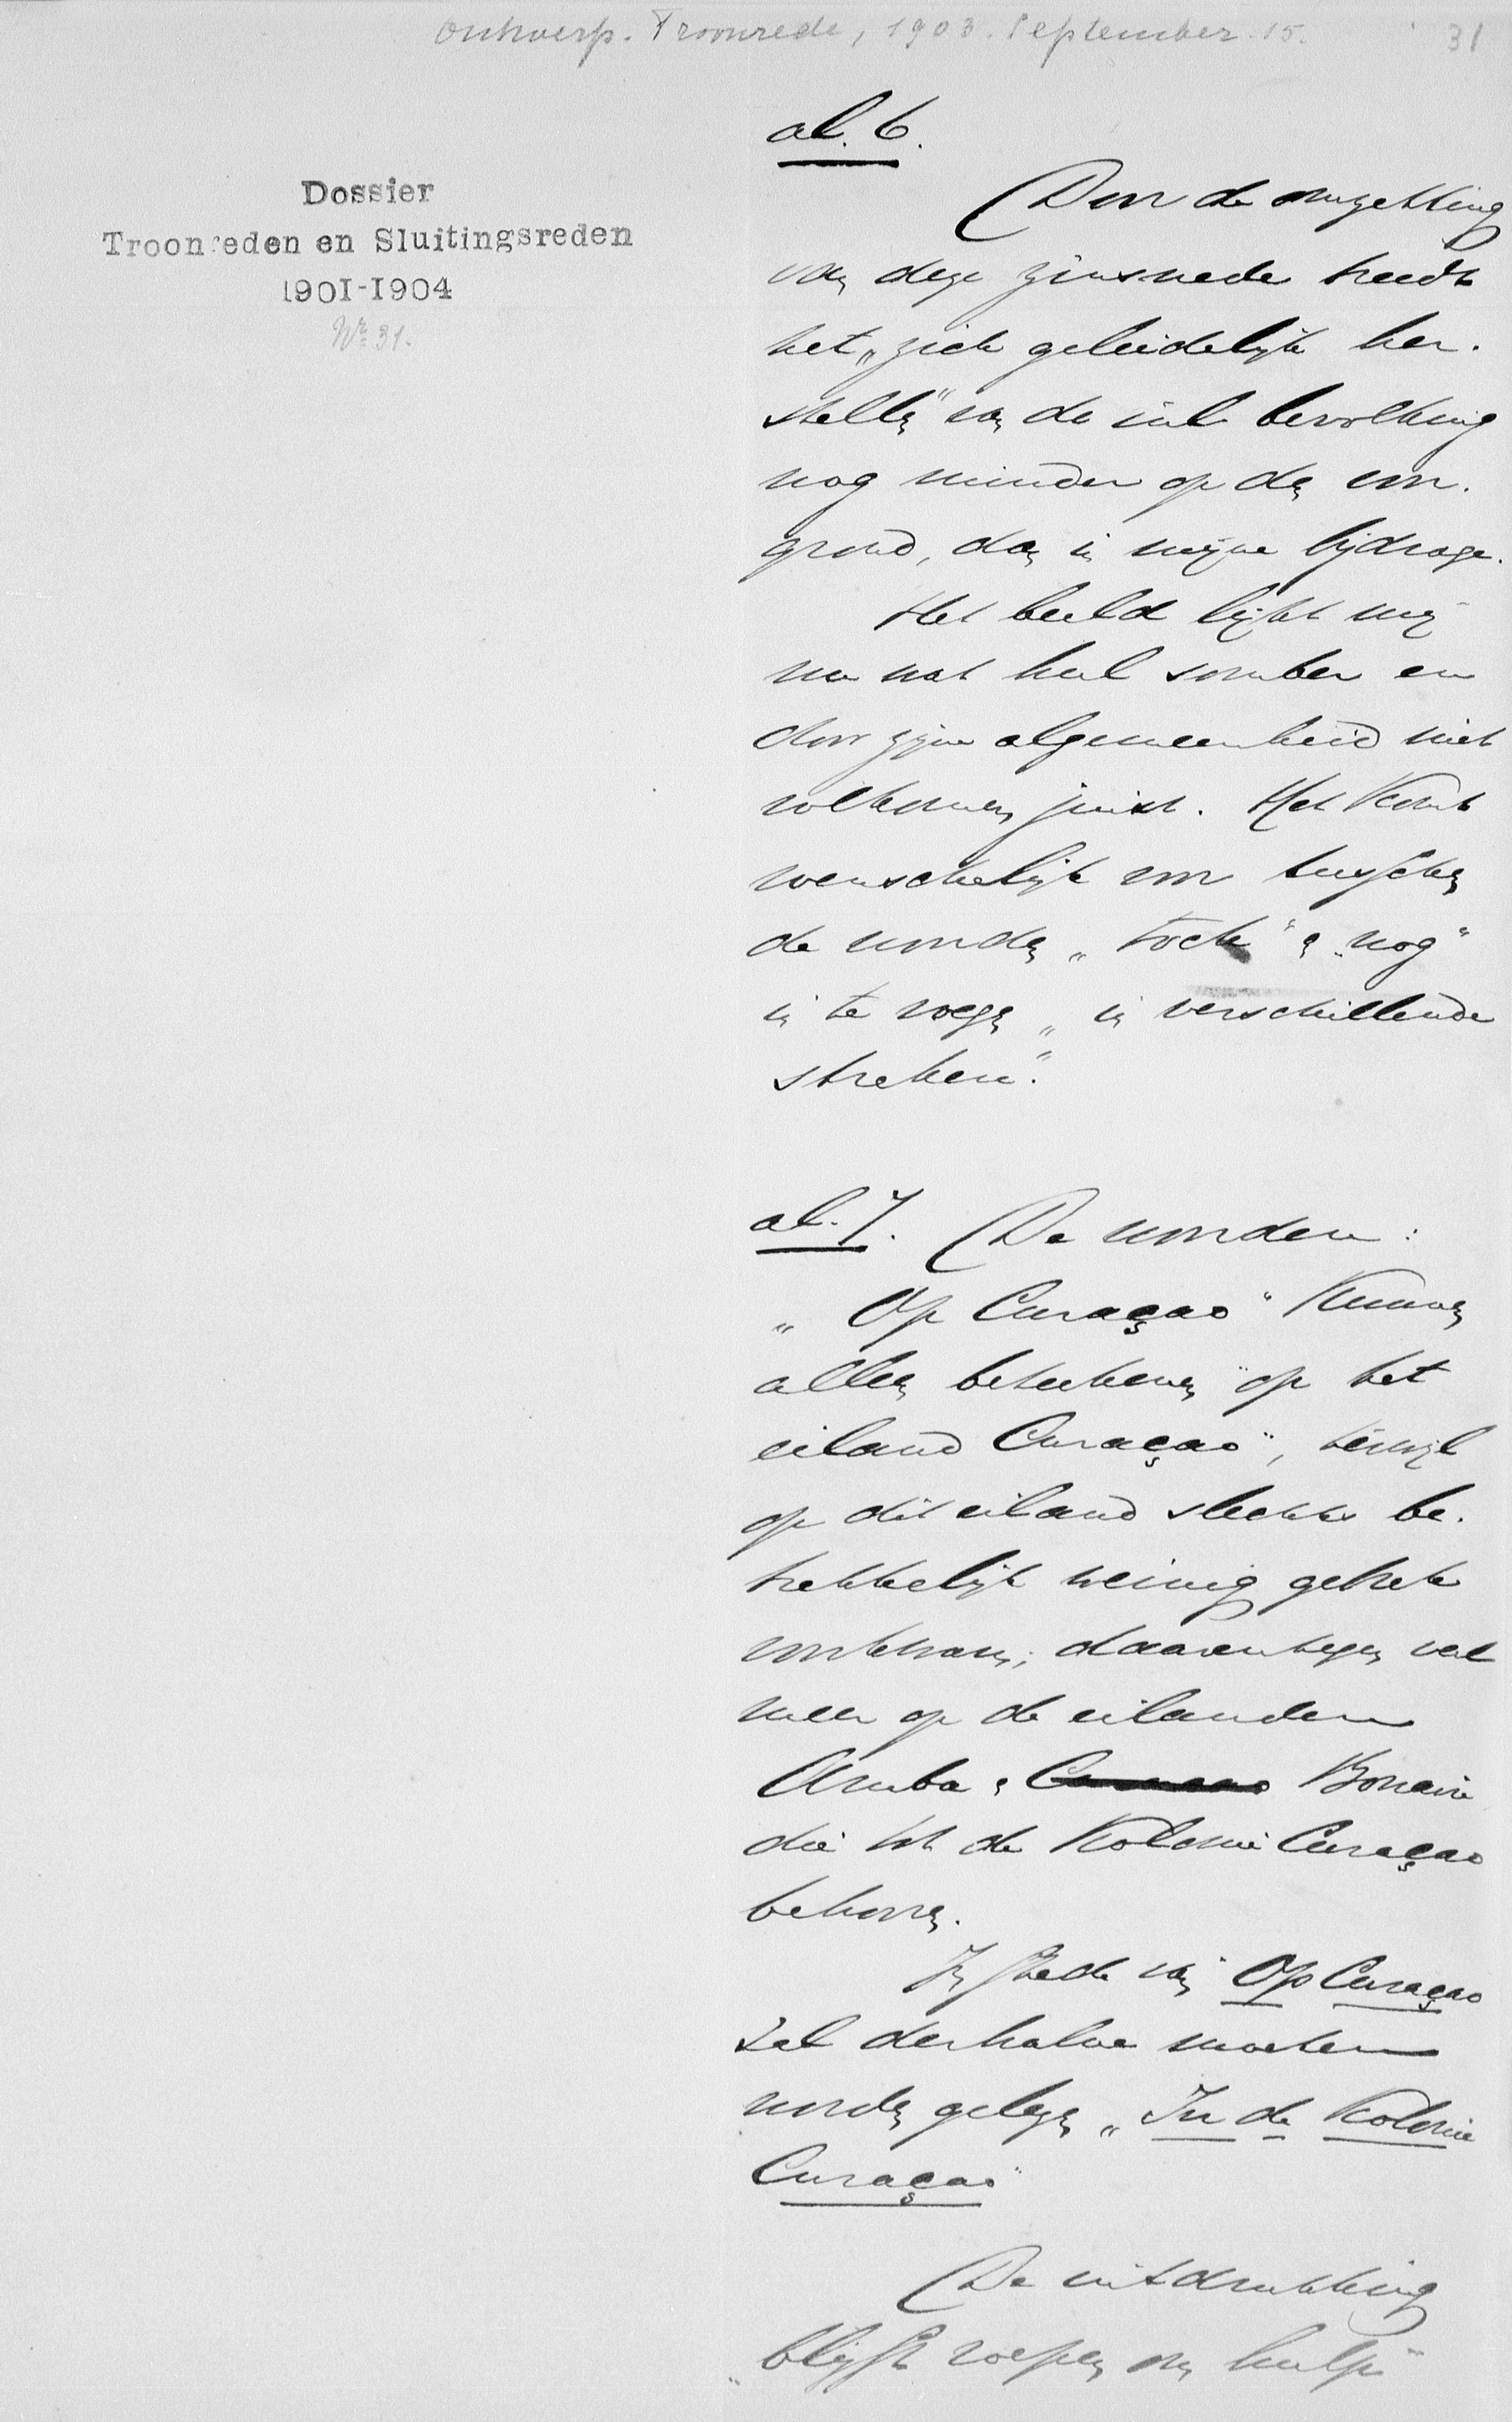 Ontwerp. Troonrede, 1903. September. 15. 31
Dossier
Troonreden en Sluitingsreden
1901-1904
Nr 31.
al. 6.
Door de omzetting
van deze zinsnede treedt
het „zich geleidelijk her-
stellen" van de inl. bevolking
nog minder op den voor-
grond, dan in mijne bijdrage.
Het beeld lijkt mij
nu wat heel somber en
door zijne algemeenheid niet
volkomen juist. Het komt
wenschelijk voor tusschen
de woorden „toch" en „nog"
in te voegen „in verschillende
streken".
al. 7. De woorden:
„Op Curaçao" kunnen
alleen beteekenen "op het
eiland Curaçao", terwijl
op dit eiland slechts be-
trekkelijk weinig gebrek
voorkwam; daarentegen veel
meer op de eilanden
Aruba en Curaçao Bonaire
die tot de Kolonie Curaçao
behooren.
In stede van "Op Curaçao
zal derhalve moeten
worden gelezen „In de Kolonie
Curaçao"
De uitdrukking
„blijft roepen om hulp"